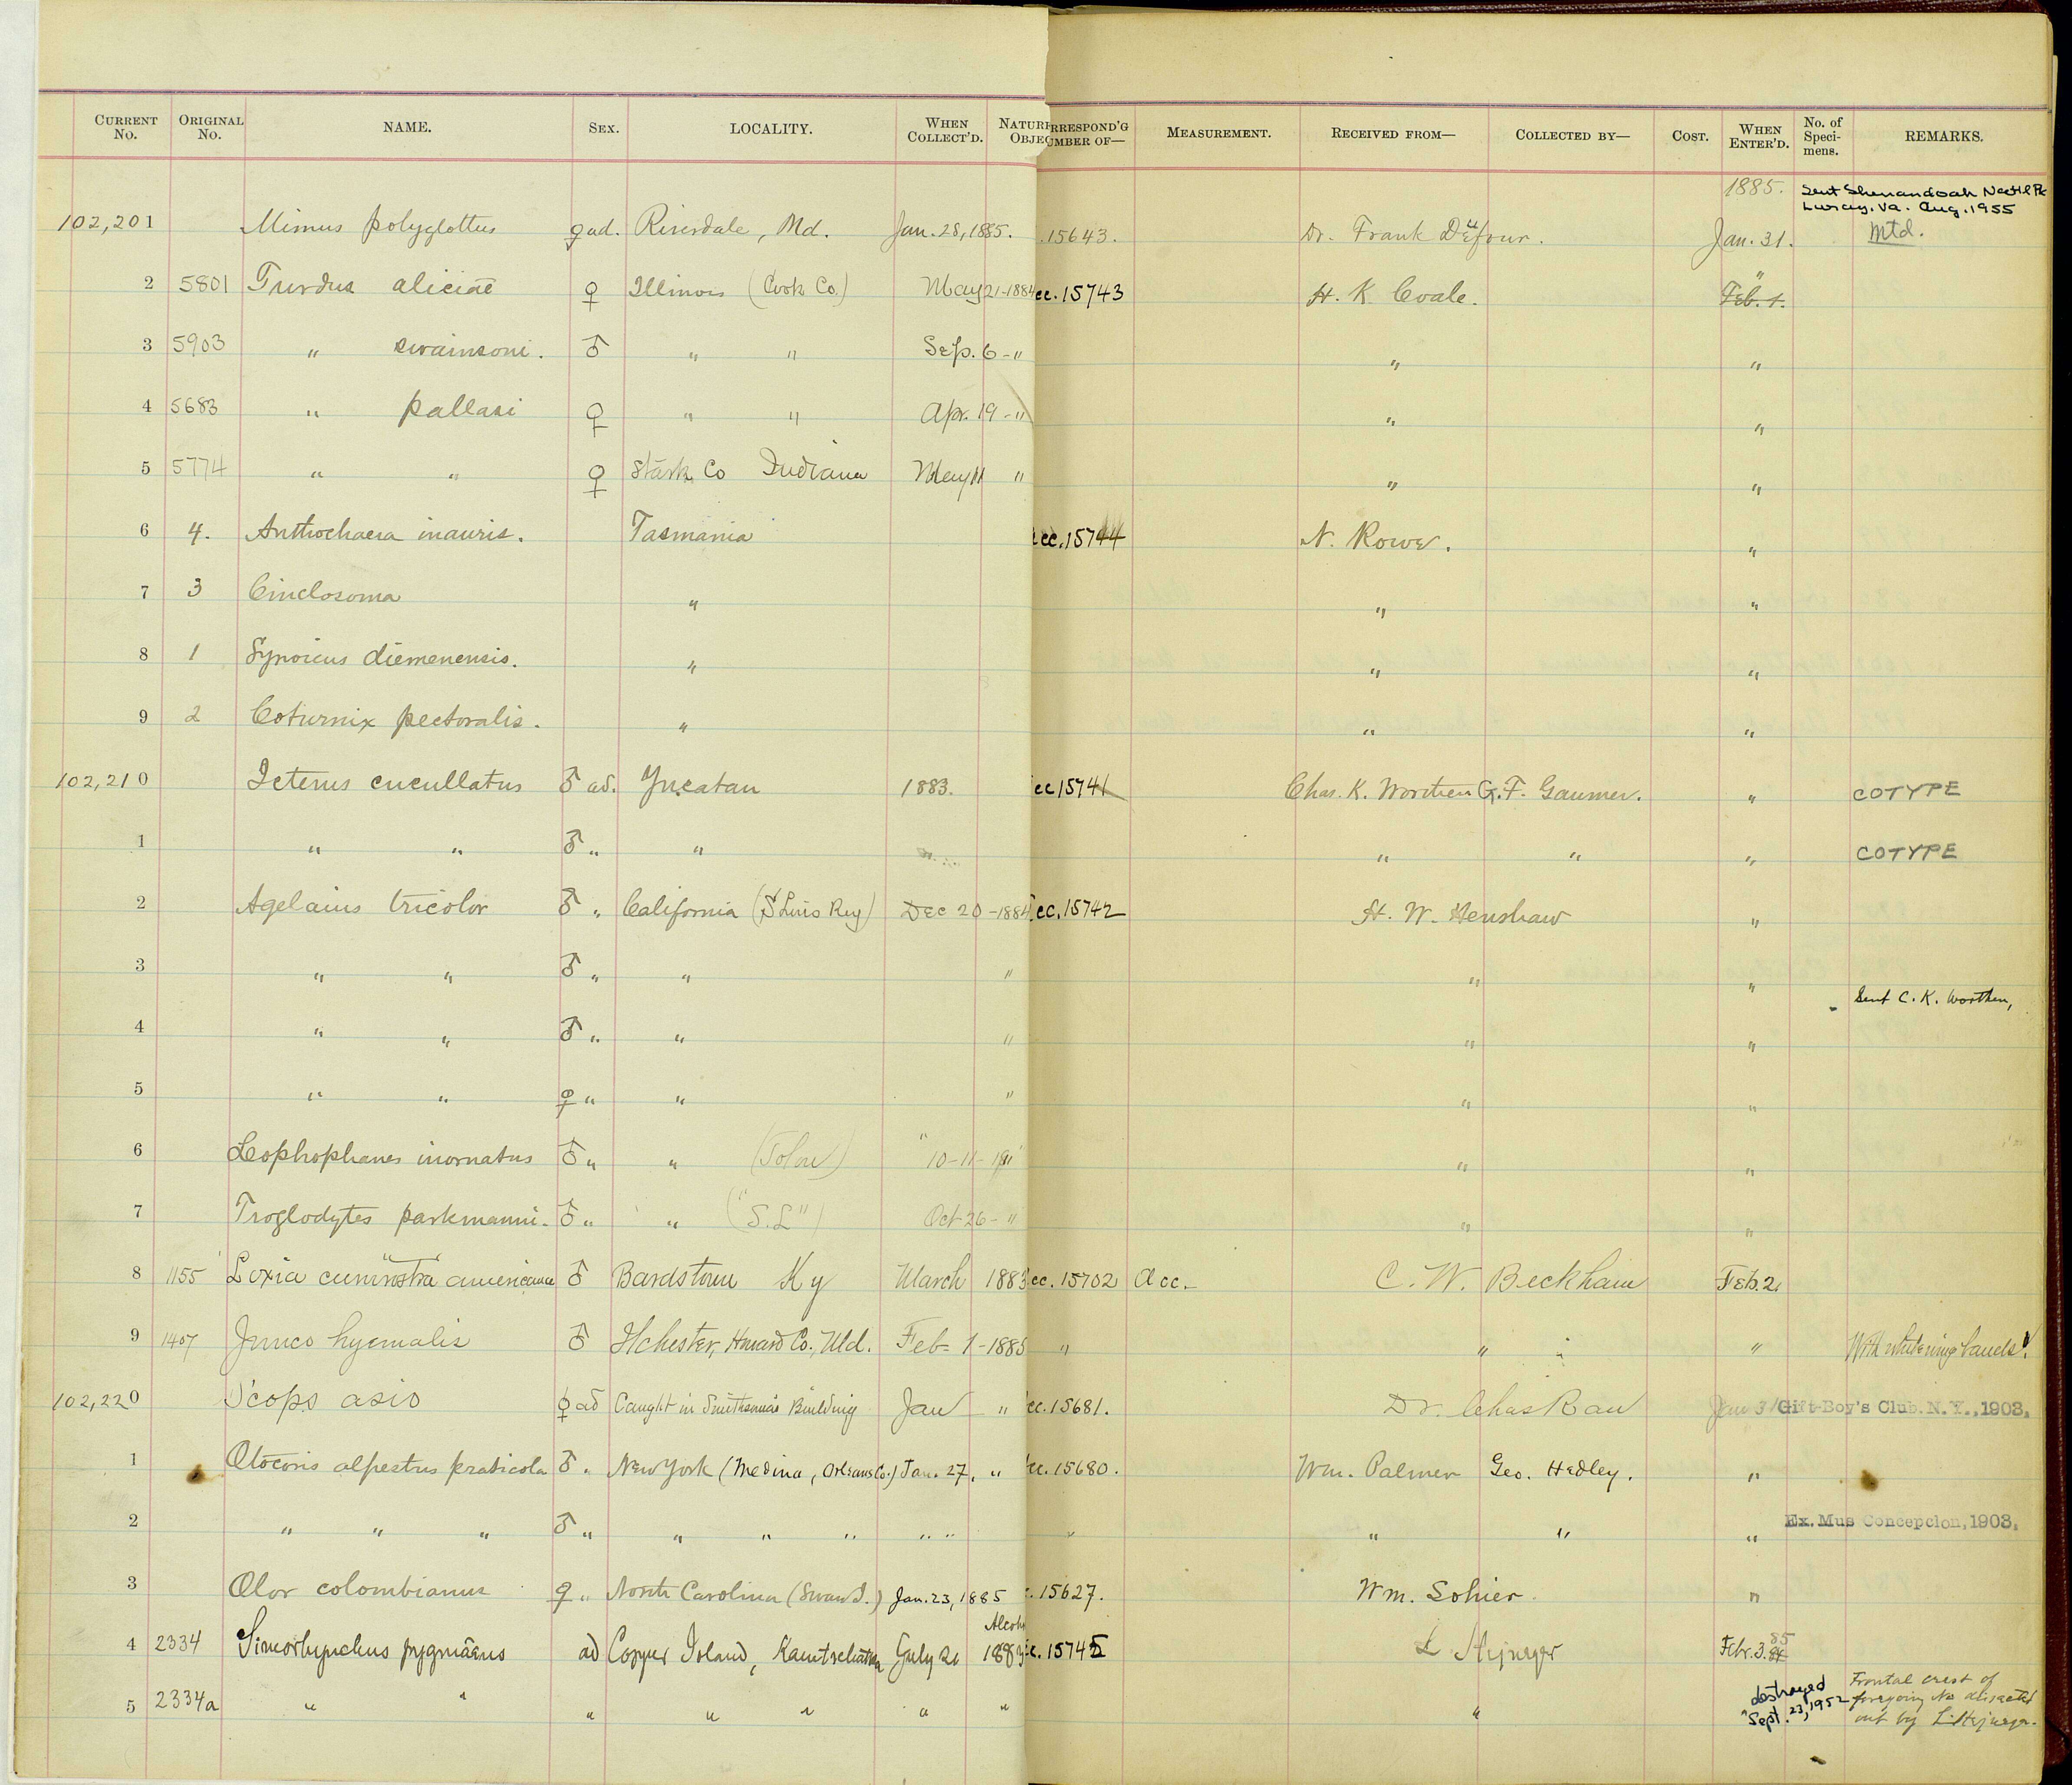 CURRENT No. ORIGINAL No. NAME. SEX. LOCALITY. WHEN COLLECT'D. NATURE OBJEC RRESPOND'G UMBER OF— MEASUREMENT. RECEIVED FROM— COLLECTED BY— COST. WHEN ENTER'D. No. of Speci- mens. REMARKS.
1885. Sent Shenandoah Nat'l Pk
Luray, Va. Aug. 1955
102,201 Mimus polyglottus ♀ ad. Riverdale, Md. Jan. 28, 1885. .15643. Dr. Frank Jan. 31. Mtd.
2 5801 Turdus aliciae ♀ Illinois (Cook Co.) May 21-1884 cc. 15743 H. K. Coale. " Feb. 1.
3 5903 " swainsoni. ♂ " " Sep. 6 - " " "
4 5683 " pallasi ♀ " " Apr. 19 - " " "
5 5774 " " ♀ Stark Co Indiana May 11 " " "
6 4. Anthochaera inauris. Tasmania cc. 15744 N. Rowe. "
7 3 Cinclosoma " " "
8 1 Synoicus diemenensis. " " "
9 2 Coturnix pectoralis. " " "
102,210 Icterus cucullatus ♂ ad. Yucatan 1883. cc 15741 Chas. K. Worthen G. F. Gaumer. " COTYPE
1 " " ♂ " " " " " COTYPE
2 Agelaius tricolor ♂ " California (S Luis Rey) Dec 20 -1884 cc. 15742 H. W. Henshaw "
3 " " ♂ " " " " "
Sent C. K. Worthen,
4 " " ♂ " " " " "
5 " " ♀ " " " " "
6 Lophophanes inornatus ♂ " " " 10-11- " "
7 Troglodytes parkmanni. ♂ " " ("S.L") Oct 26 - " " "
8 1155 Loxia curvirostra americana ♂ Bardstown Ky March 1883 cc. 15702 Acc. C. W. Beckham Feb. 2.
9 1407 Junco hyemalis ♂ Ilchester, Howard Co., Md. Feb- 1-1885 " " " " With white wing bands.
102,220 Scops asio ♀ ad Caught in Smithsonian Building Jan " cc. 15681. Dr. Chas Rau Jan 31 Gift-Boy's Club. N. Y., 1903.
1 Otocoris alpestris praticola ♂ " New York (Medina, Orleans Co.) Jan. 27. " cc. 15680. Wm. Palmer Geo. Hedley. "
2 " " " ♂ " " " " " " " " " " Ex. Mus Concepcion, 1903.
3 Olor colombianus ♀ " North Carolina (Swan I.) Jan. 23, 1885 c. 15627. Wm. Sohier. "
Alcoh
4 2334 Simorhynchus pygmaeus ad Copper Island, Kamtschatka July 21 1883 c. 15745 L Stejneger Febr. 3. 84 85
5 2334a " " " " " " " " " destroyed Sept. 23, 1952
Frontal crest of
foregoing No dissected
out by L. Stejneger.